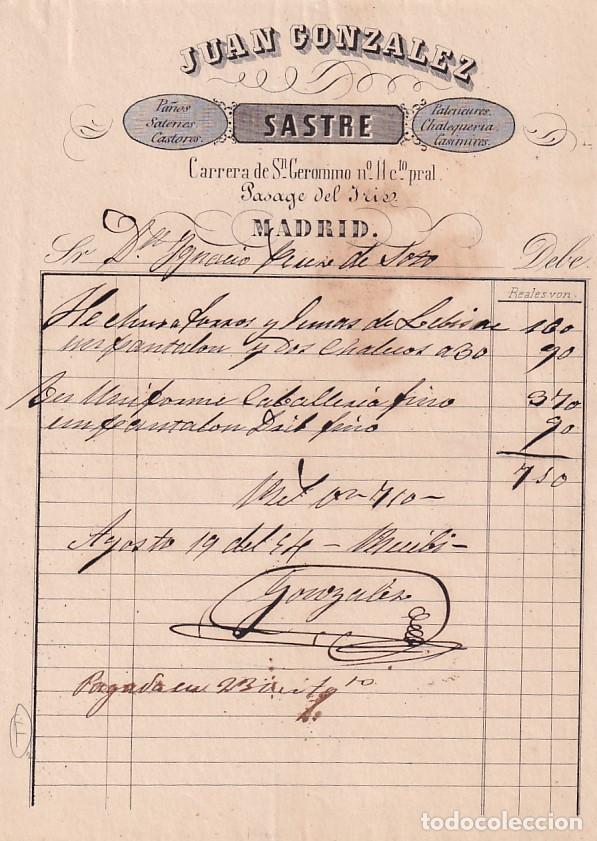 JUAN GONZALEZ
Paños
Satenes.
Castores.
SASTRE
Patencures.
Chalequeria
Casimires.
Carrera de Sn. Geronimo nº. 11 cto. pral.
Pasage del Iris.
MADRID.
Sr. Dn. Ignacio de Soto Debe
Reales von.
Hechura forros y de 160
un pantalon y dos chalecos a 30 90
Un Uniforme Caballeria fino 370
un pantalon Dril fino 90
710
Rs vn 710
Agosto 19 del 54 Recibi
Gonzalez
Pagada en 23
todocoleccion